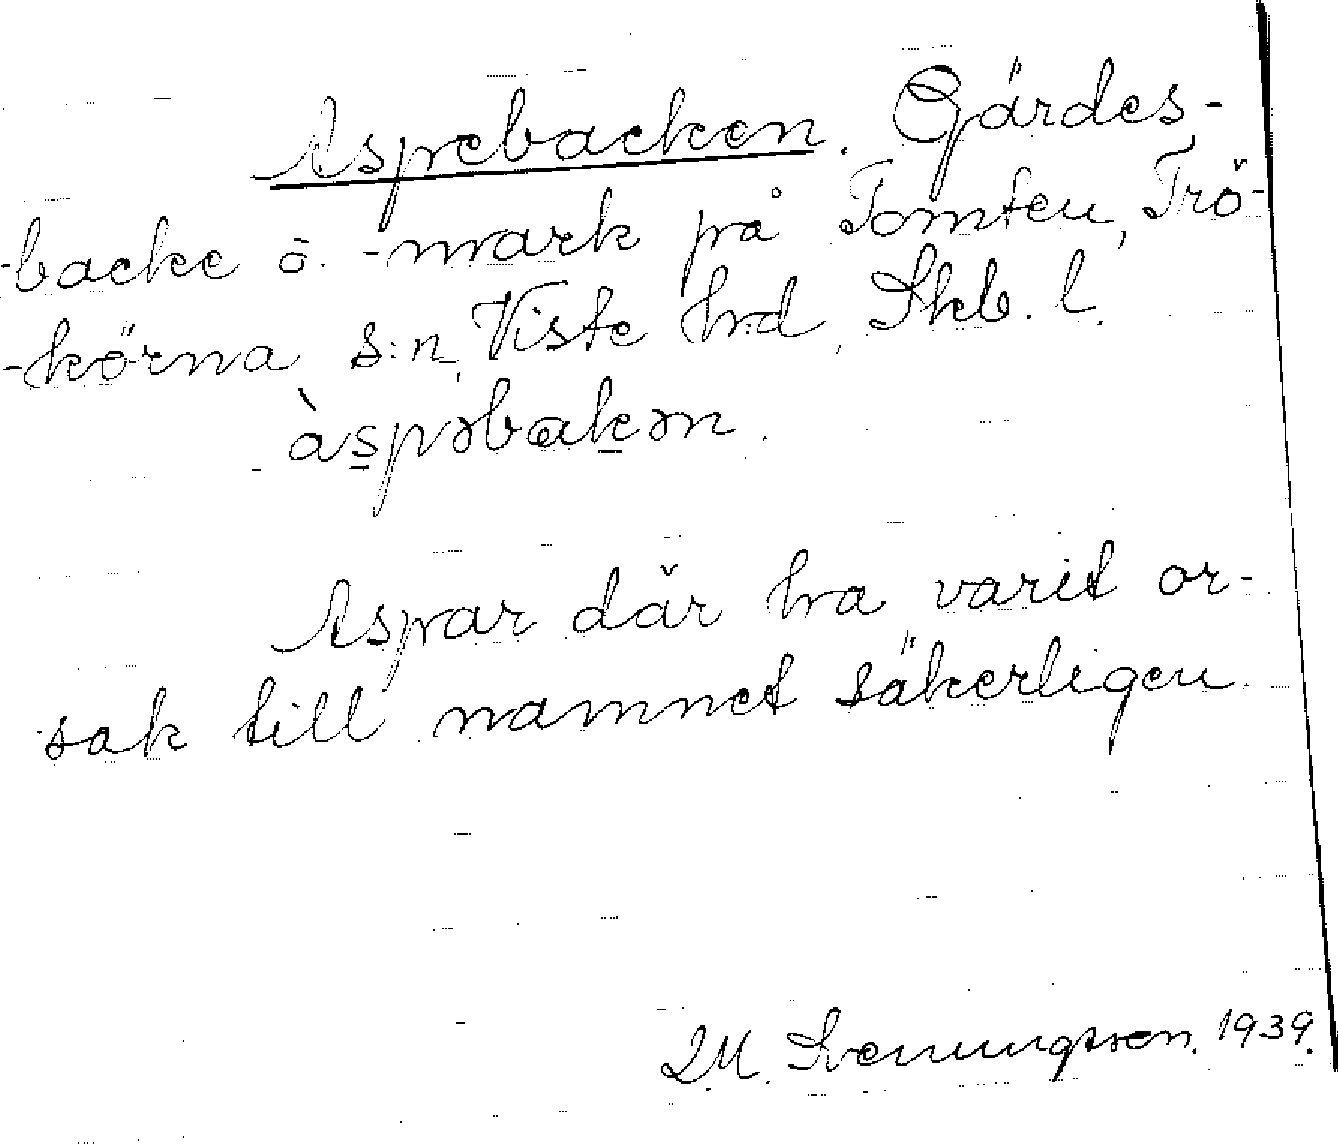 Aspebacken. Gärdes-
-backe o. -mark på Tomten, Trö-
-körna s:n, Viste hrd, Skb. l.
àspəbakən.
Aspar där ha varit or-
sak till namnet säkerligen
Svenungsson. 1939.